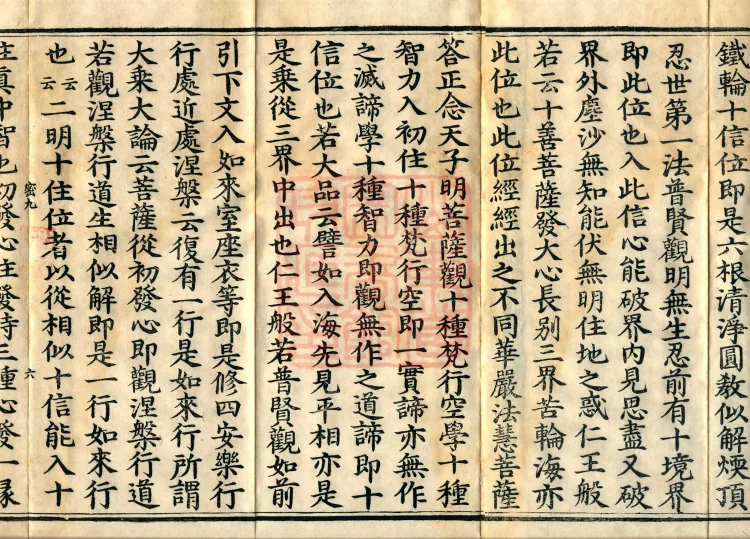 鐵輪十信位即是六根清淨圓教似解煗頂
忍世第一法普賢觀明無生忍前有十境界
即此位也入此信心能破界內見思盡又破
界外塵沙無知能伏無明住地之惑仁王般
若云十善菩薩發大心長別三界苦輪海亦
此位也此位經經出之不同華嚴法慧菩薩
答正念天子明菩薩觀十種梵行空學十種
智力入初住十種梵行空即一實諦亦無作
之滅諦學十種智力即觀無作之道諦即十
信位也若大品云譬如入海先見平相亦是
是乘從三界中出也仁王般若普賢觀如前
引下文入如來室座衣等即是修四安樂行
行處近處涅槃云復有一行是如來行所謂
大乘大論云菩薩從初發心即觀涅槃行道
若觀涅槃行道生相似解即是一行如來行
也云云二明十住位者以從相似十信能入十
密九 六
住真中智也初發心住發時三種心發一緣